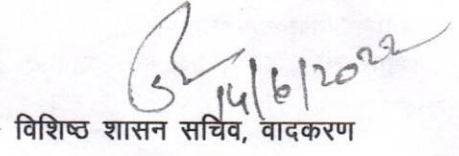 14/6/2022
विशिष्ठ शासन सचिव, वादकरण